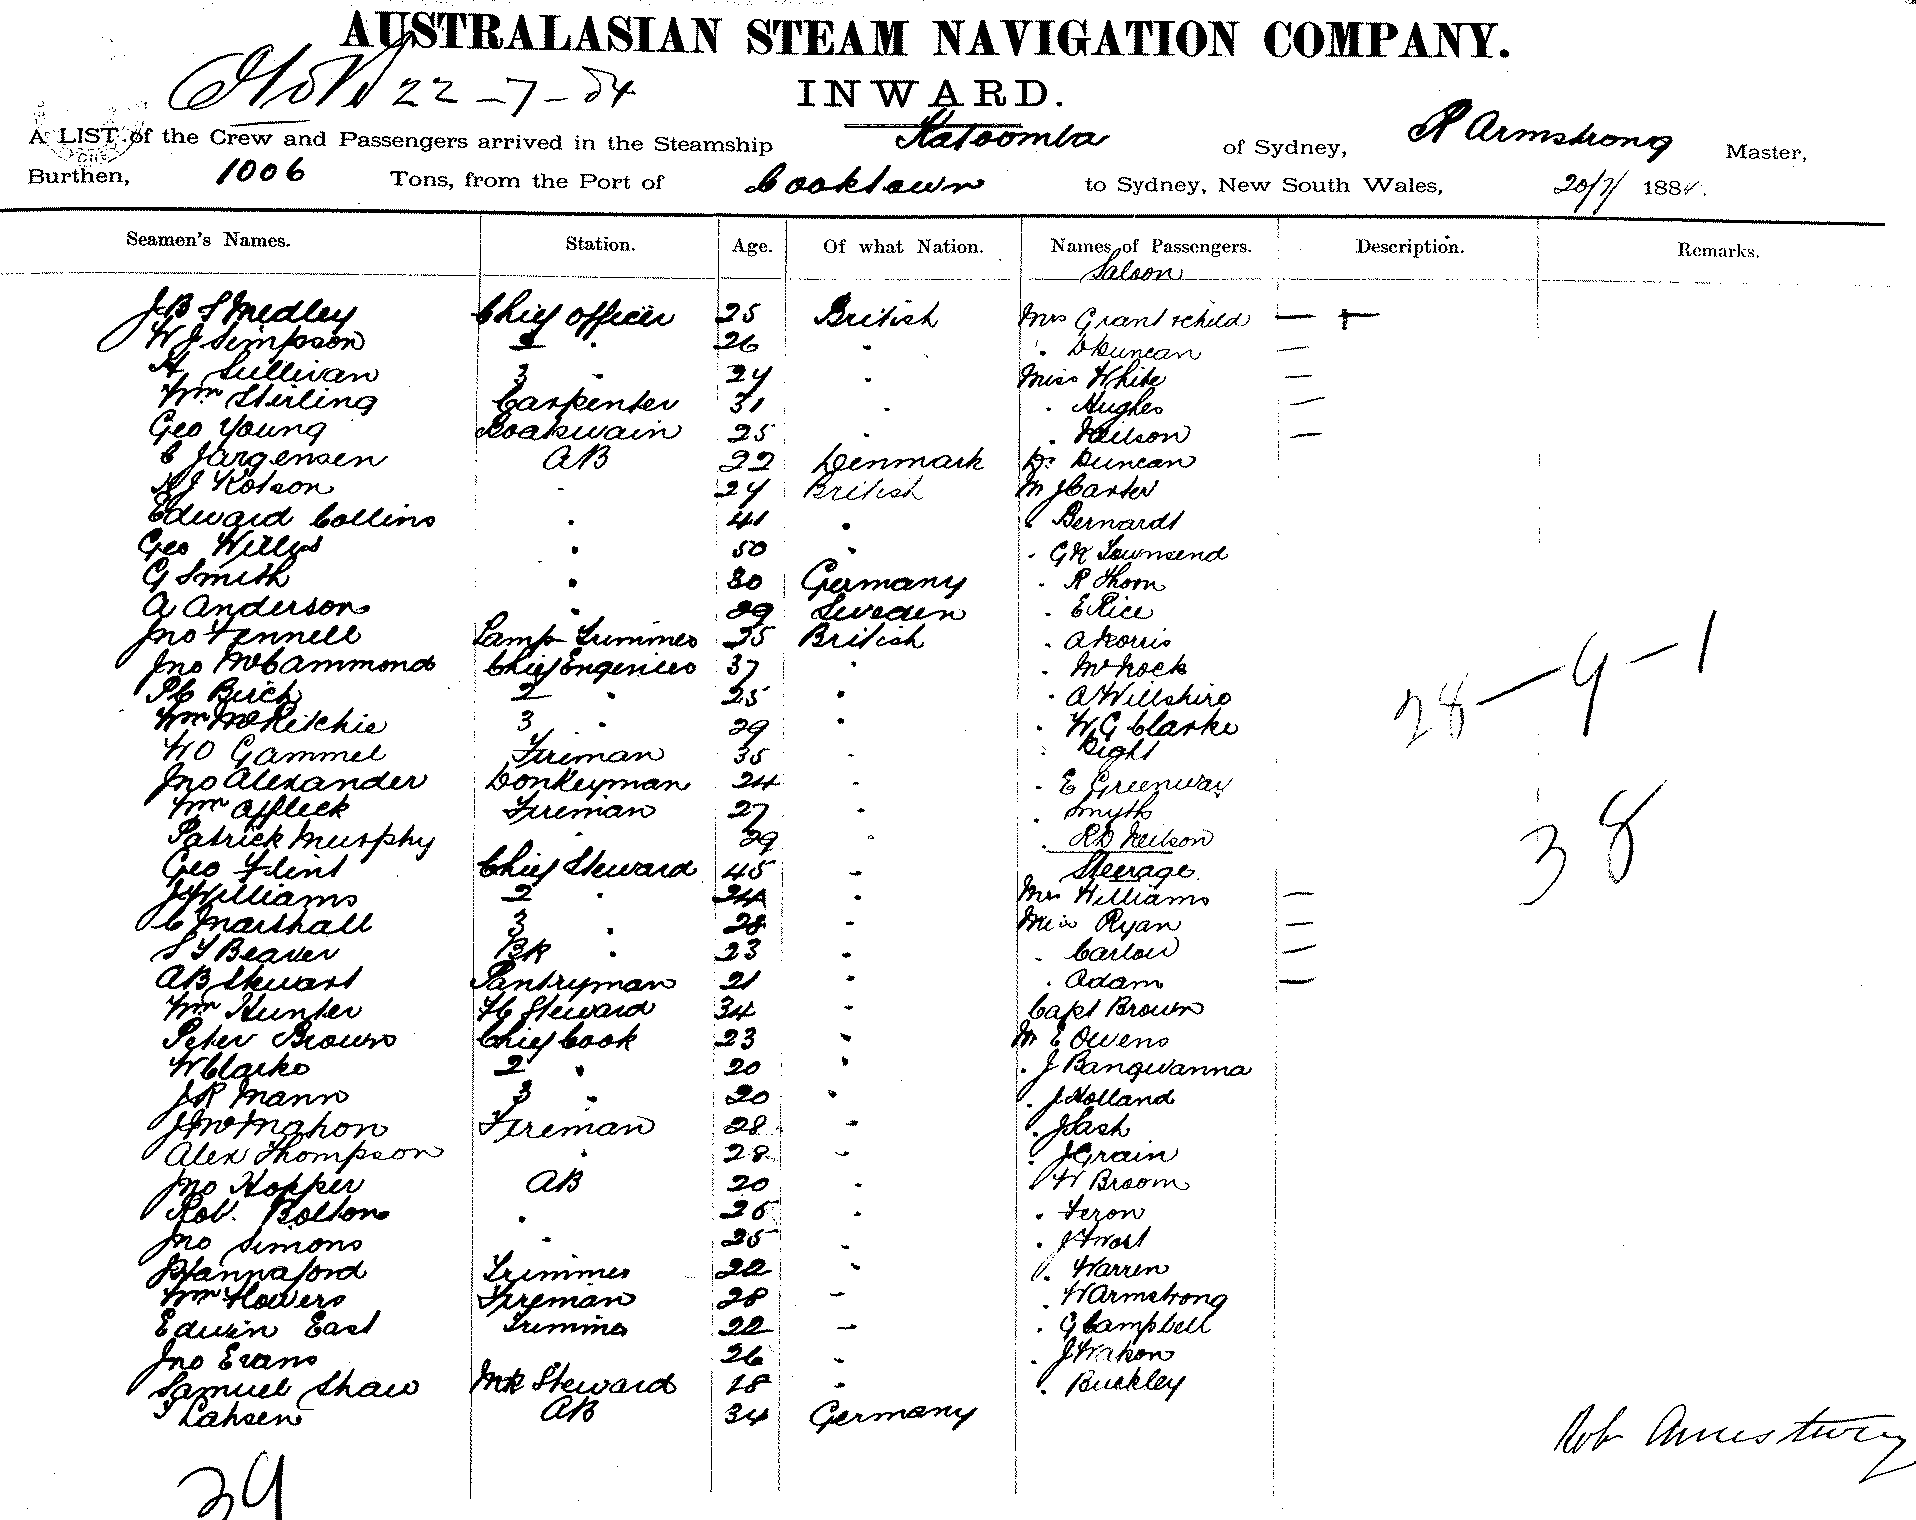 AUSTRALASIAN STEAM NAVIGATION COMPANY.
22-7-84 INWARD.
A LIST of the Crew and Passengers arrived in the Steamship Katoomba of Sydney, R Armstrong Master,
Burthen, 1006 Tons, from the Port of Cooktown to Sydney, New South Wales, 20/7/ 1884.
Seamen's Names. Station. Age. Of what Nation. Names of Passengers. Description. Remarks.
Saloon
J.B Smedley Chief officer 25 British Mrs Grant & child — +
W J Simpson 2 " 26 " " Duncan —
H Sullivan 3 " 24 " Miss White —
Wm Stirling Carpenter 31 " " Hughes —
Geo Young Boatswain 25 " " Neilson —
C Jargensen AB 22 Denmark Dr Duncan
Kolson " 24 British Mr J Carter
Edward Collins " 41 " " Bernardt
Geo Willys " 50 " " G K Townsend
G Smith " 30 Germany " R Thom
A Anderson " 29 Sweden " E Rice
Jno Fennell Lamp Trimmer 35 British " A Norris
Jno McCammond Chief Engineer 37 " " McNock
P C Birch 2 " 25 " " A Willshire
Wm McRitchie 3 " 29 " " W G Clarke
W O Gammel Fireman 35 " " Dight
Jno Alexander Donkeyman 24 " " E Greenway
Wm Affleck Fireman 27 " " Smyth
Patrick Murphy " 29 " " R D Neilson
Geo Flint Chief Steward 45 " Steerage
J Williams 2 " 24 " Mrs Williams —
C Marshall 3 " 28 " Miss Ryan —
S T Beaver BK " 23 " " —
A B Stewart Pantryman 21 " " Adam —
Wm Hunter FC Steward 34 " Capt Brown
Peter Brown Chief Cook 23 " Mr E Owens
W Clarke 2 " 20 " " J Bangwanna
J R Mann 3 " 20 " " J Holland
J McMahon Fireman 28 " " J Cash
Alex Thompson " 28 " " J Grain
Jno Hopper AB 20 " " W Broom
Rob. Bolton " 26 " " Feron
Jno Simons " 25 " "
J Hannaford Trimmer 22 " " Warren
Wm Flowers Fireman 28 " " W Armstrong
Edwin East Trimmer 22 " " G Campbell
Jno Evans 26 " "
Samuel Shaw Mk Steward 18 " " Buckley
Lahsen AB 34 Germany
28 — 9 — 1
38
Rob Armstrong
39